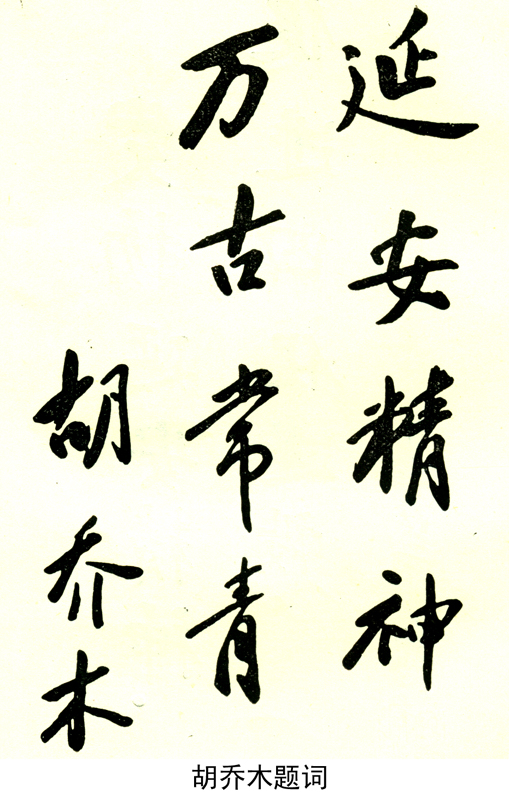 延安精神
万古常青
胡乔木
胡乔木题词